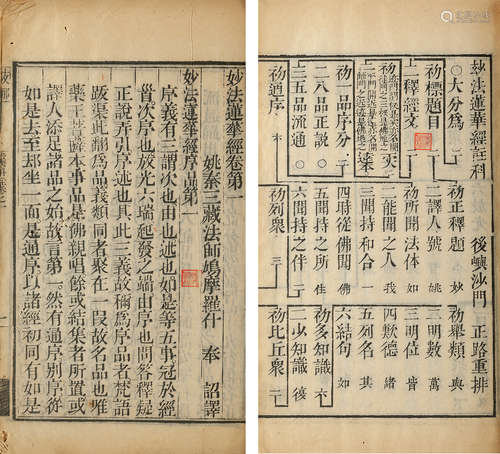 妙法蓮華經註科 後嶼沙門 正路重排
〇大分為二 初正釋題 妙 初舉類 典
初標題目二 二譯人號 姚 三明數 萬
上二釋經文三 初所聞法體 如 三明位 皆
二能聞之人 我 四歎德 諸
三聞持和合 一 五列名 其
初一品序分二 四時從佛聞 佛 六結句 如
二八品正說 五聞持之所 住 初多知識 有
上三五品流通 六聞持之伴 二少知識 復
初通序 初列衆 初比丘衆
妙法蓮華經卷第一
姚秦三藏法師鳩摩羅什 奉 詔譯
妙法蓮華經序品第一
序義有三謂次也由也述也如是等五事冠於經
首次序也放光六瑞起發之端由序也問答釋疑
正說弄引序述也具此三義故稱為序品者梵語
跋渠此翻為品義類同者聚在一段故名品也唯
藥王本事品是佛親唱餘或結集者所置或
譯人添足諸品之始故言第一然有通序別序從
如是去至却坐一面是通序以諸經初同有如是